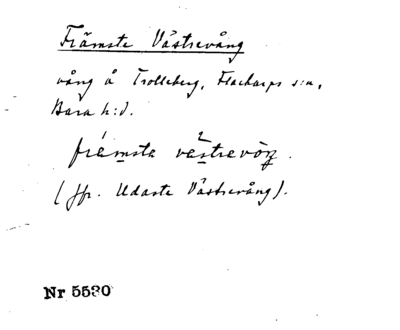 Främste Västrevång
vång å Trolleberg, Flackarps s:n,
Bara h:d.
främsta västrevåŋg.
(jfr. Udaste Västrevång).
Nr 5530